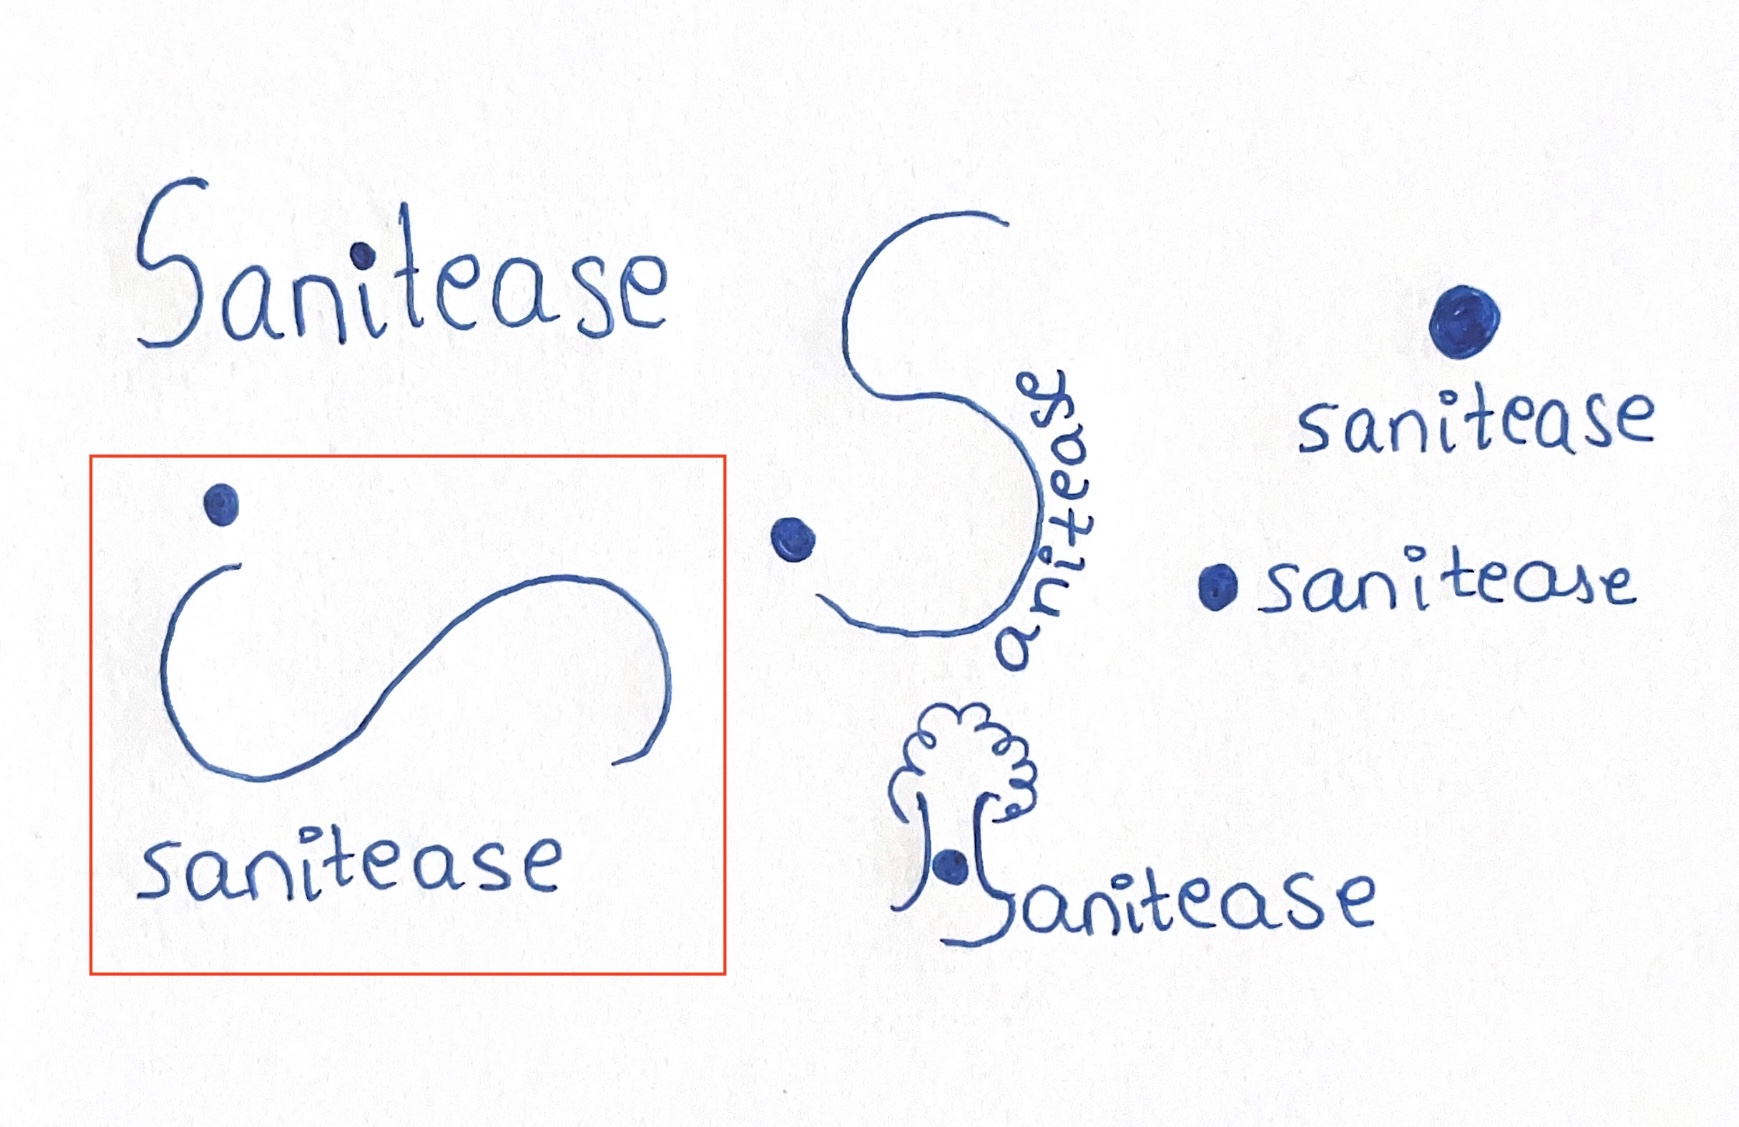 Sanitease
sanitease
Sanitease
sanitease
sanitease
Sanitease